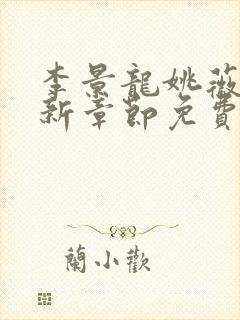 李景龍姚薇
新章節免費
蘭小歡